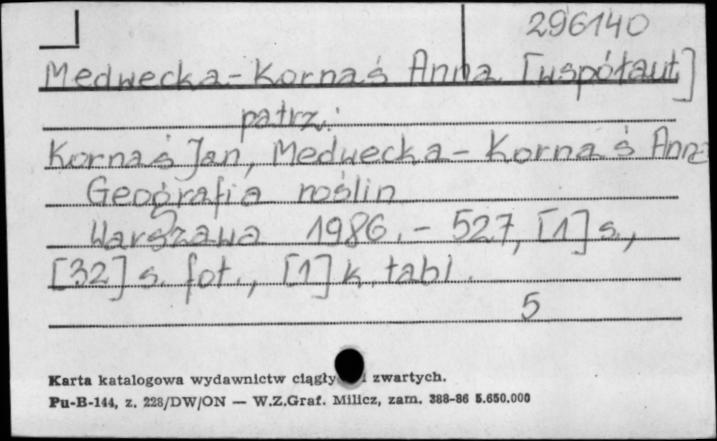 296140
Medwecka-Kornaś Anna [współaut]
patrz:
Kornaś Jan, Medwecka-Kornaś Anna
Geografia roślin
Warszawa 1986. - 527, [1] s.,
[32] s. fot., [1] k. tabl.
5
Karta katalogowa wydawnictw ciągły i zwartych.
Pu-B-144, z. 228/DW/ON — W.Z.Graf. Milicz, zam. 388-86 5.650.000